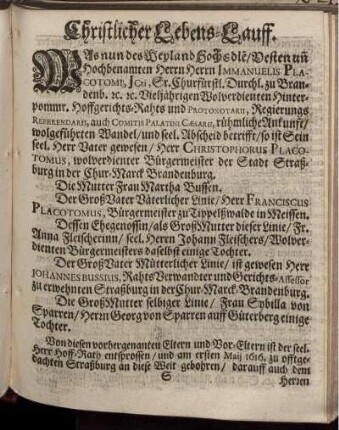 Christlicher Lebens-Lauff.
WAs nun des Weyland HochEdlē/Vesten uñ
Hochbenanten Herrn Herrn IMMANUELIS PLA-
COTOMI, JCti, Sr. Churfürstl. Durchl. zu Bran-
denb. ꝛc. ꝛc. Vieljährigen Wolverdienten Hinter-
pommr. Hoffgerichts-Rahts und PROTONOTARII, Regierungs
REFERENDARII, auch COMITIS PALATINI CÆSAREI, rühmliche Ankunft/
wolgeführten Wandel/und seel. Abscheid betrifft/so ist Sein
seel. Herr Vater gewesen/ Herr CHRISTOPHORUS PLACO-
TOMUS, wolverdienter Bürgermeister der Stadt Straß-
burg in der Chur-Marck Brandenburg.
Die Mutter Frau Martha Bussen.
Der GroßVater Väterlicher Linie/ Herr FRANCISCUS
PLACOTOMUS, Bürgermeister zu Tippelßwalde in Meissen.
Dessen Ehegenossin/als GroßMutter dieser Linie/ Fr.
Anna Fleischerinn/ seel. Herrn Johann Fleischers/Wolver-
dienten Bürgermeisters daselbst einige Tochter.
Der GroßVater Mütterlicher Linie/ ist gewesen Herr
JOHANNES BUSSIUS, Rahts Verwandter und Gerichts-Assessor
zu erwehnten Straßburg in der Chur-Marck-Brandenburg.
Die GroßMutter selbiger Linie/ Frau Sybilla von
Sparren/ Herrn Georg von Sparren auff Güterberg einige
Tochter.
Von diesen vorhergenanten Eltern und Vor-Eltern ist der seel.
Herr Hoff-Rath entsprossen/ und am ersten Maij 1616. zu offtge-
dachten Straßburg an diese Welt gebohren/ darauff auch dem
S Herren